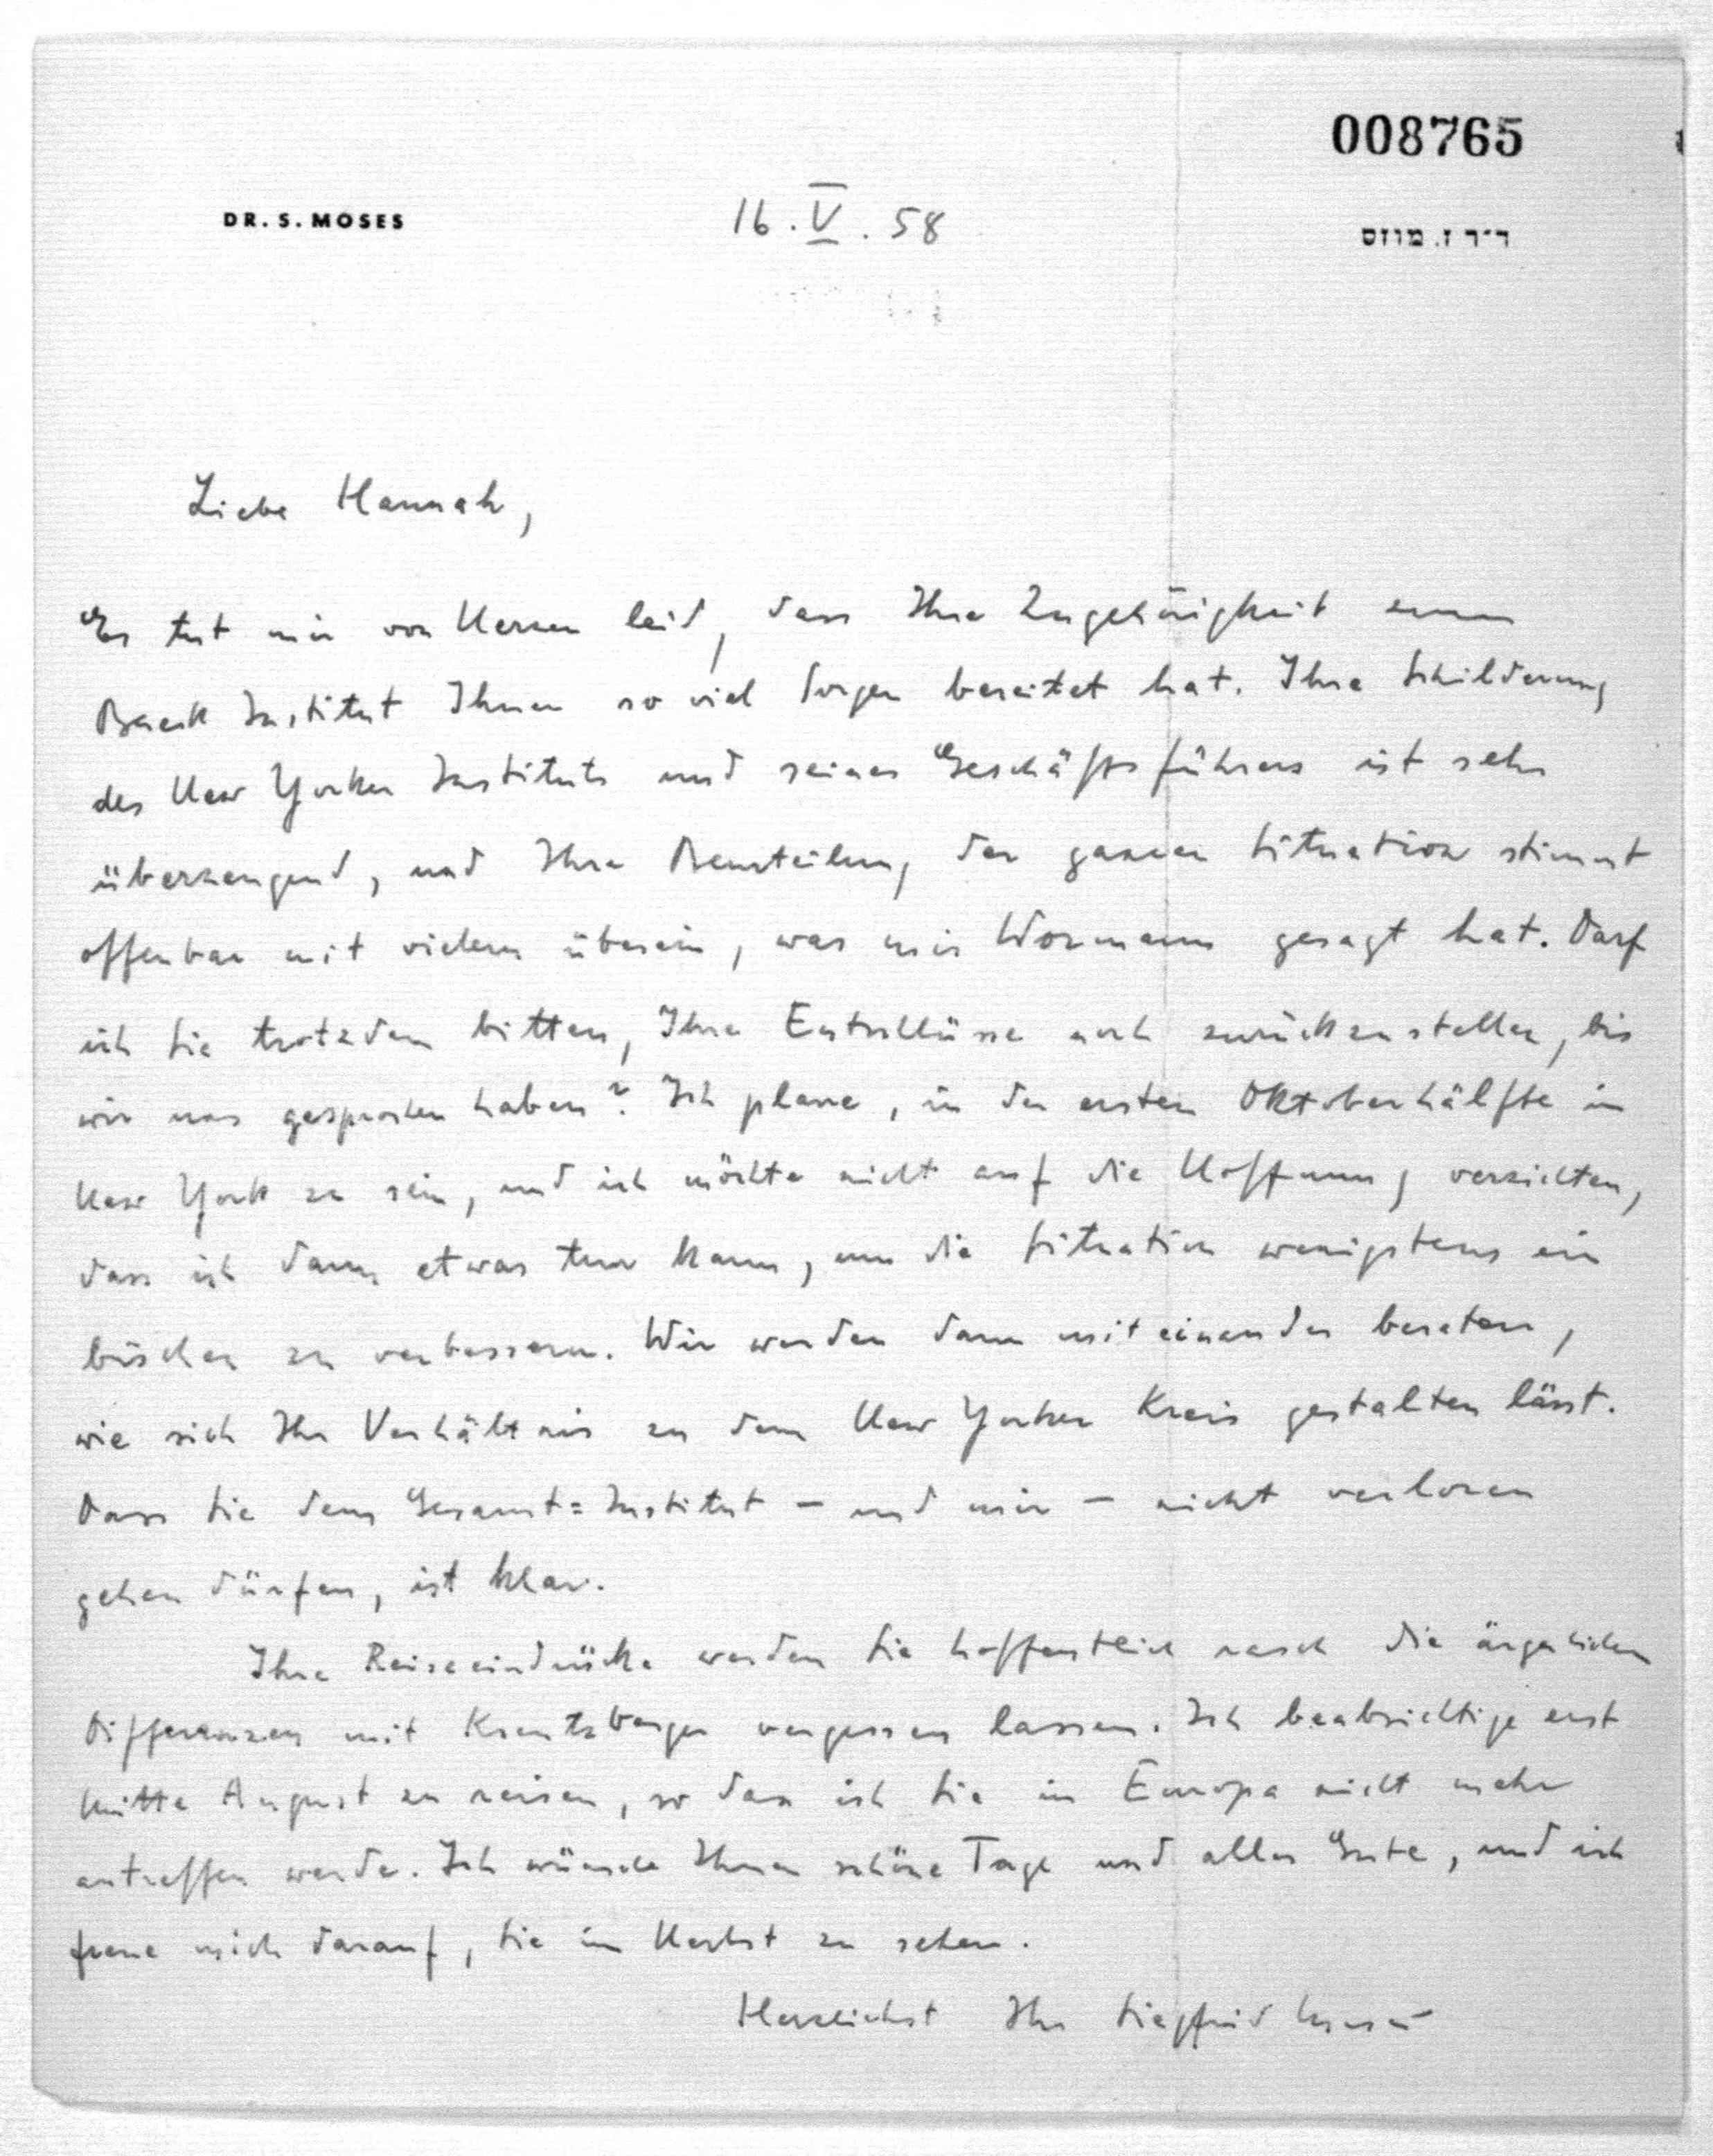 008765
DR. S. MOSES
16. V. 58
ד״ר ז. מוזס
Liebe Hannah,
Es tut mir von Herzen leid, dass Ihre Zugehörigkeit zum
Baeck Institut Ihnen so viel Sorgen bereitet hat. Ihre Schilderung
des New Yorker Instituts und seines Geschäftsführers ist sehr
überzeugend, und Ihre Beurteilung der ganzen Situation stimmt
offenbar mit vielem überein, was mir Wormann gesagt hat. Darf
ich Sie trotzdem bitten, Ihre Entschlüsse noch zurückzustellen, bis
wir uns gesprochen haben? Ich plane, in der ersten Oktoberhälfte in
New York zu sein, und ich möchte nicht auf die Hoffnung verzichten,
dass ich dann etwas tun kann, um die Situation wenigstens ein
bischen zu verbessern. Wir werden dann miteinander beraten,
wie sich Ihr Verhältnis zu dem New Yorker Kreis gestalten lässt.
Dass Sie dem Gesamt=Institut – und mir – nicht verloren
gehen dürfen, ist klar.
Ihre Reiseeindrücke werden Sie hoffentlich rasch die ärgerlichen
Differenzen mit Kreutzberger vergessen lassen. Ich beabsichtige erst
Mitte August zu reisen, so dass ich Sie in Europa nicht mehr
antreffen werde. Ich wünsche Ihnen schöne Tage und alles Gute, und ich
freue mich darauf, Sie im Herbst zu sehen.
Herzlichst Ihr Siegfried Moses